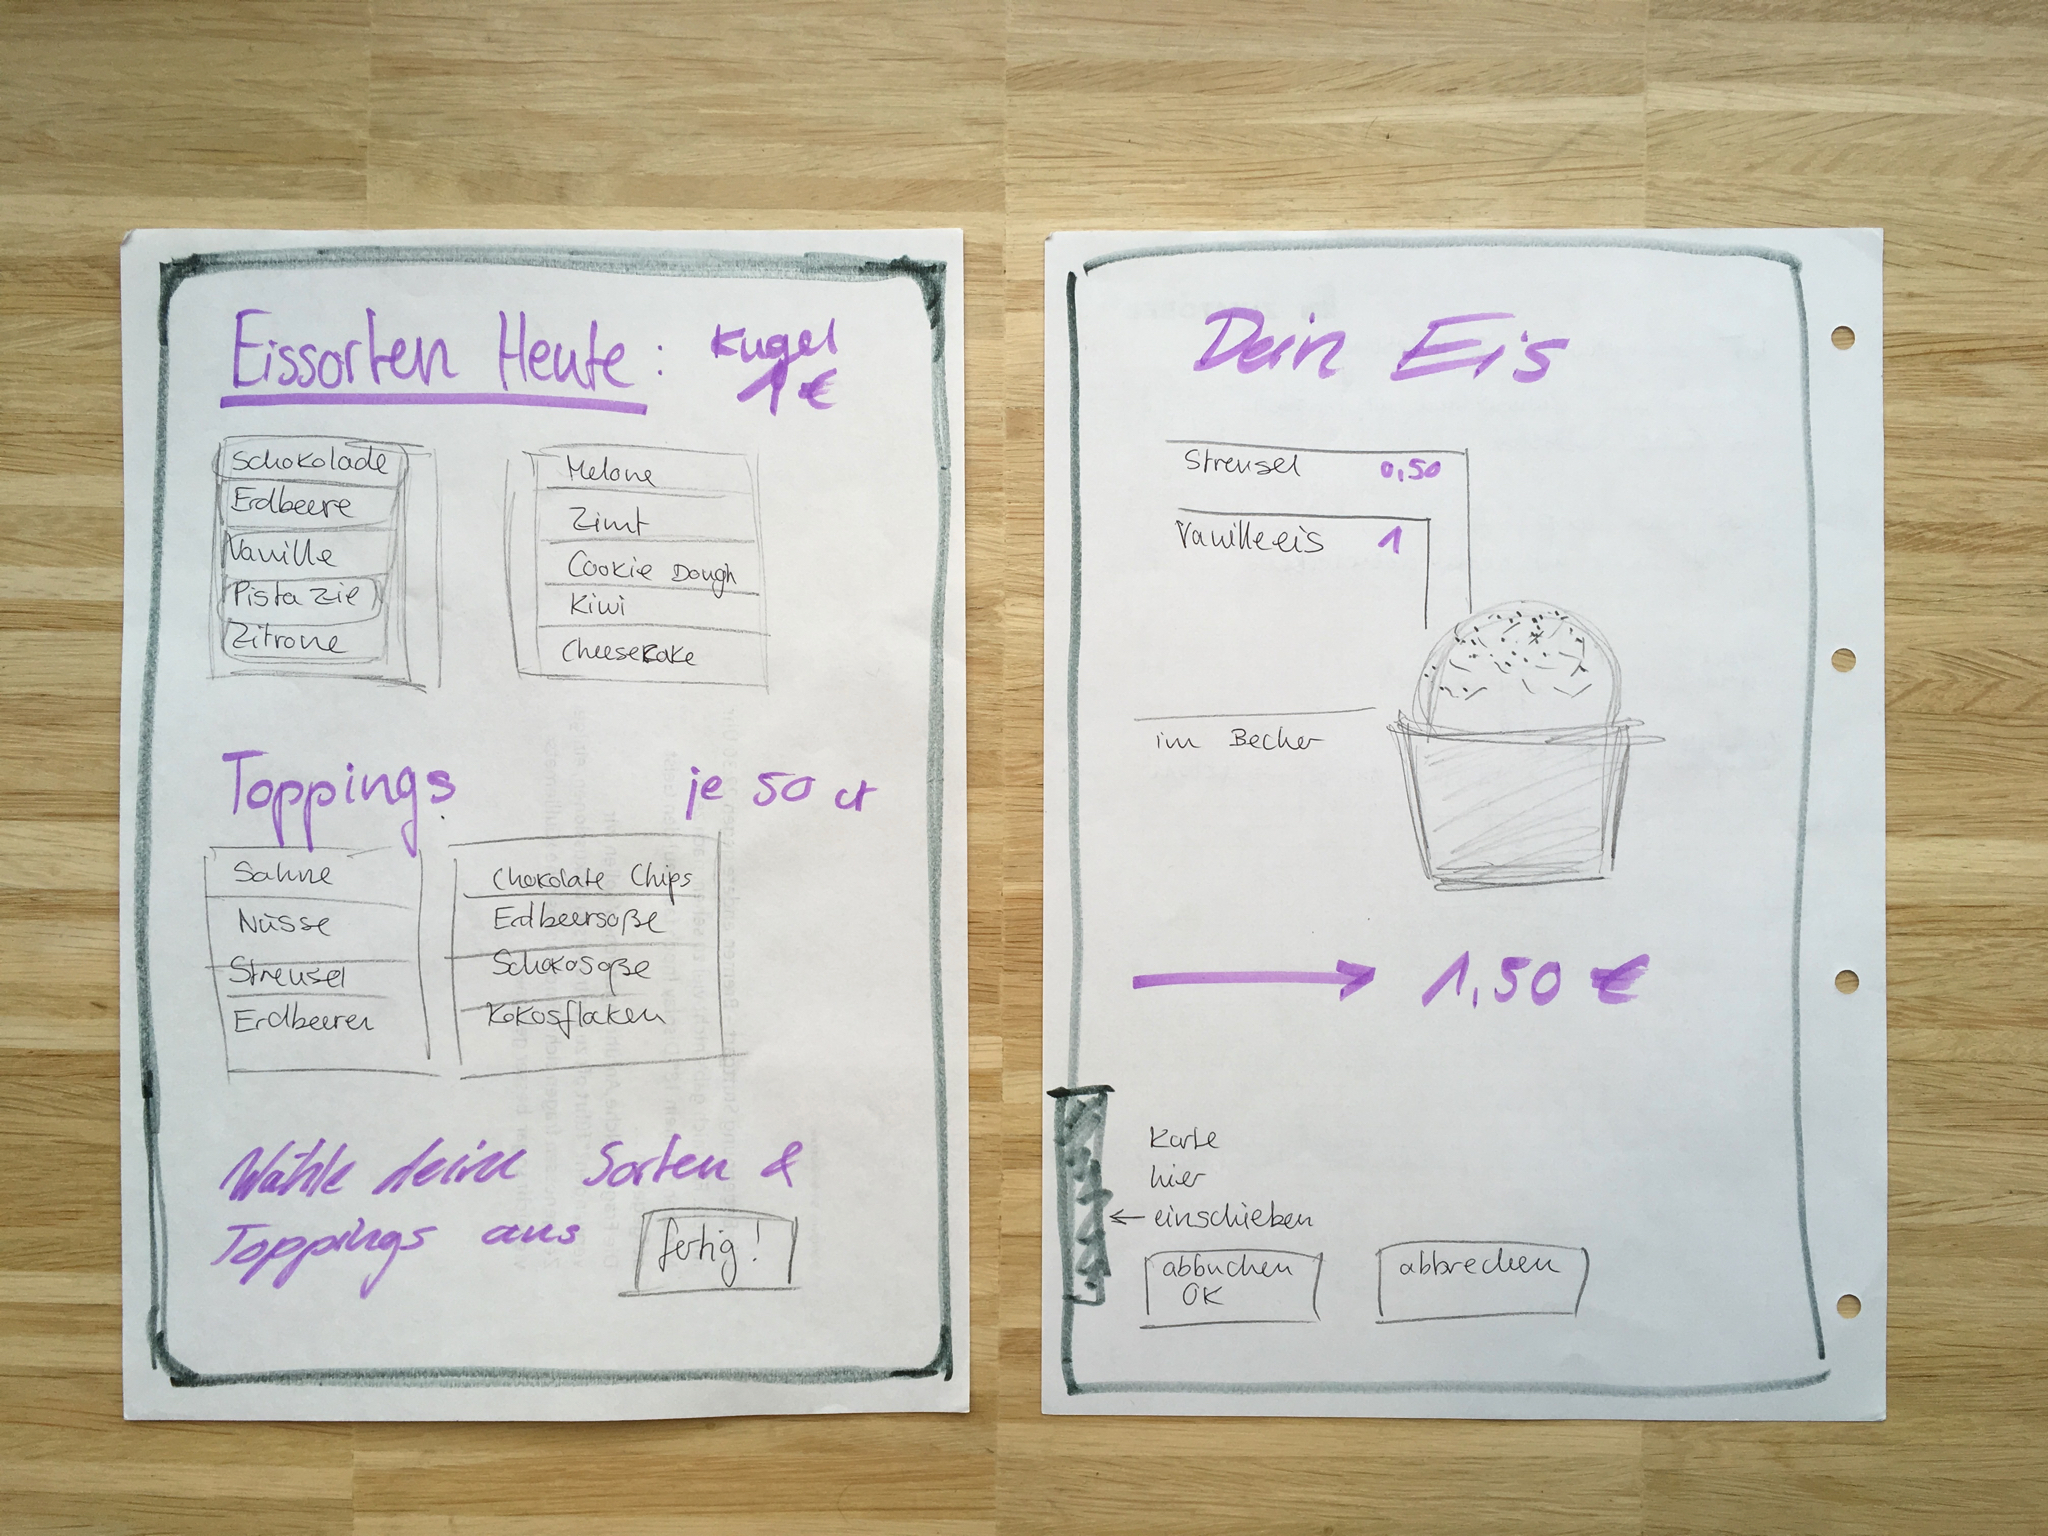 Eissorten Heute: Kugel
1 €
Schokolade
Erdbeere
Vanille
Pistazie
Zitrone
Melone
Zimt
Cookie Dough
Kiwi
Cheesecake
Toppings je 50 ct
Sahne
Nüsse
Streusel
Erdbeeren
Chokolate Chips
Erdbeersoße
Schokosoße
Kokosflocken
Wähle deine Sorten &
Toppings aus
fertig!
Dein Eis
Streusel 0,50
Vanilleeis 1
im Becher
1,50 €
Karte
hier
← einschieben
abbuchen
OK
abbrechen